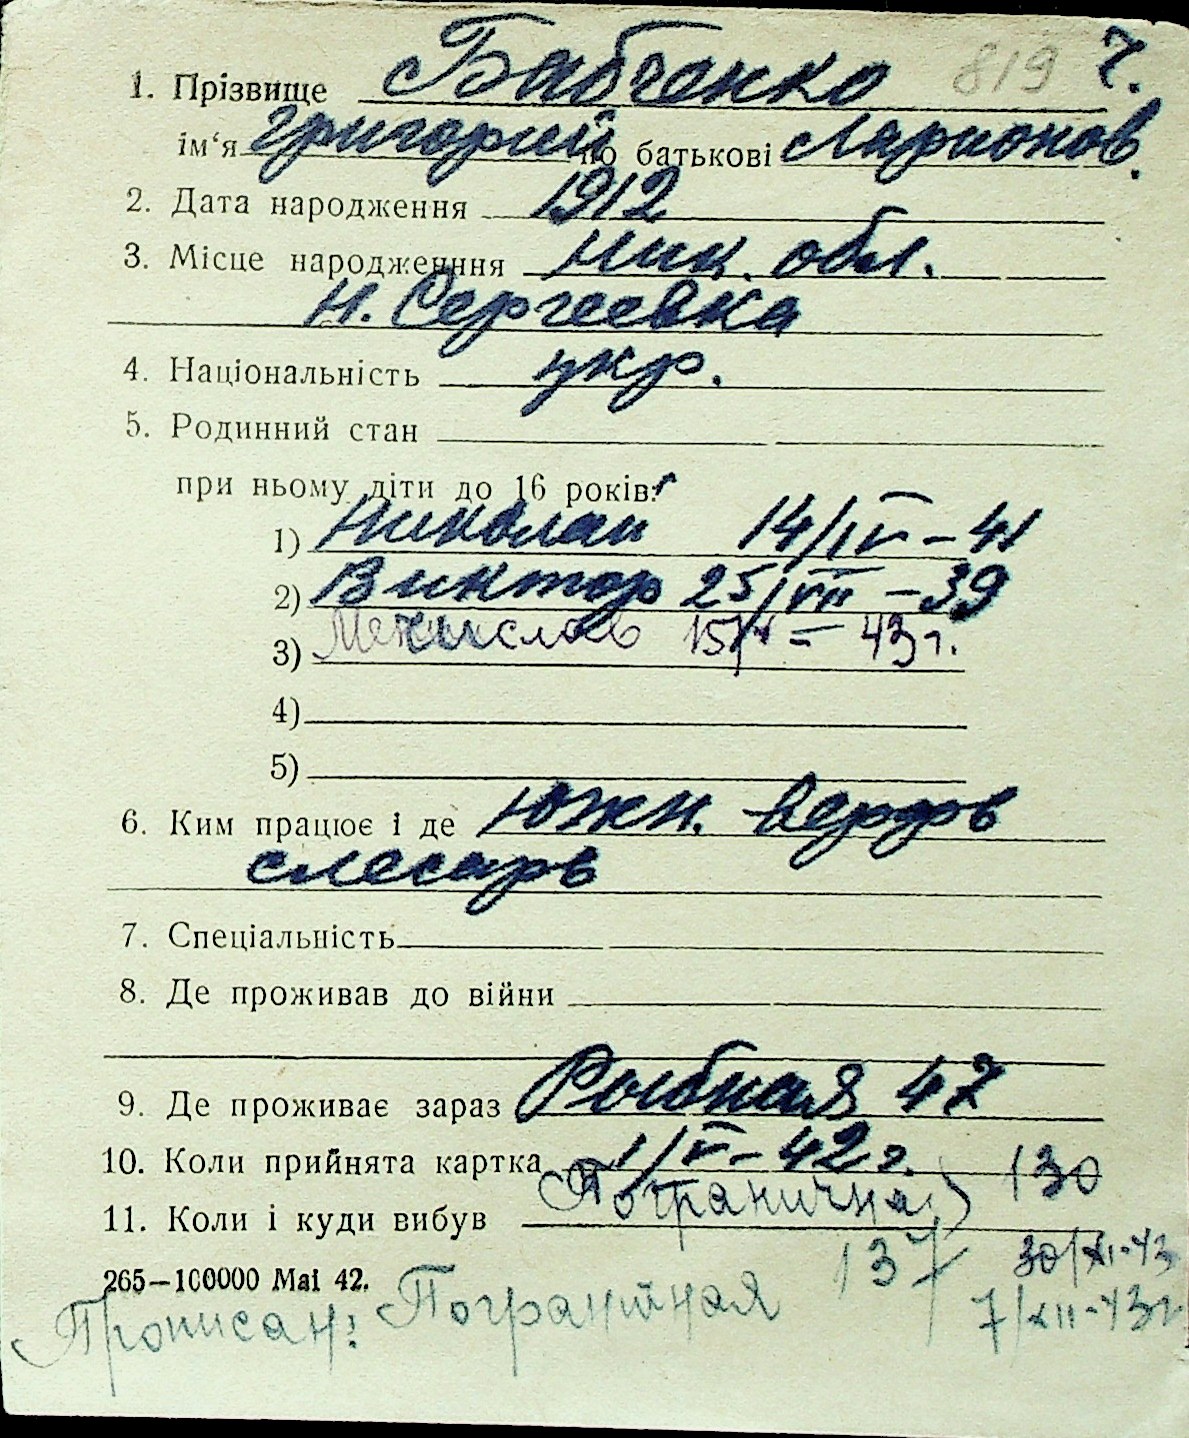 1. Прізвище Бабченко 819 7.
ім'я Григорий по батькові Ларионов.
2. Дата народження 1912
3. Місце народженння Ник. обл.
Н. Сергеевка
4. Національність укр.
5. Родинний стан
при ньому діти до 16 років:
1) Николай 14/IV – 41
2) Виктор 25/VII – 39
3) 43г.
4)
5)
6. Ким працює і де Южн. верфь
слесарь
7. Спеціальність
8. Де проживав до війни
9. Де проживає зараз Рыбная 47
10. Коли прийнята картка 1/V – 42г. 130
11. Коли і куди вибув Погранична
137 30/XI-43
265—100000 Mai 42.
Прописан: Пограничная 7/XII-43г